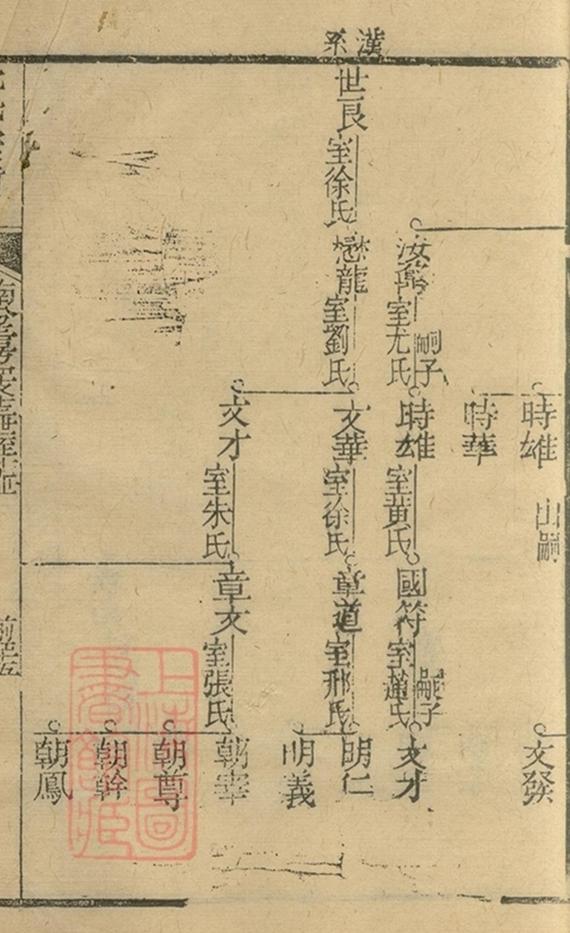 漢系
時雄
出嗣
文發
時華
汝
室尤氏
嗣子
時雄
室黃氏
國符
室
氏
嗣子
文才
世良
室徐氏
懋龍
室劉氏
文華
室徐氏
章道
室邢氏
明仁
明義
文才
室朱氏
章文
室張氏
朝宰
朝尊
朝幹
朝鳳
上海圖書館藏